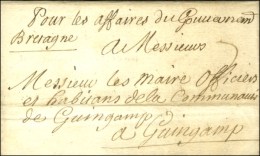 Pour les affaires du Gouvernemt
Bretagne
A Messieurs
Messieurs les Maire officiers
et habitans de la Communauté
de Guingamp
a Guingamp